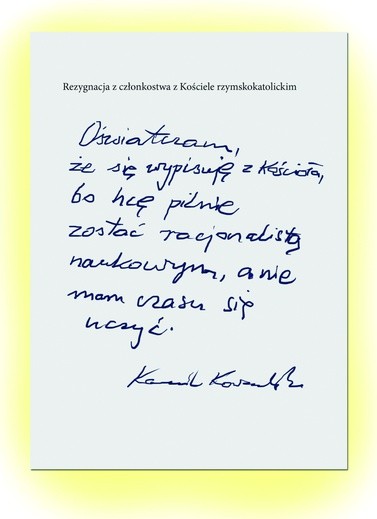 Rezygnacja z członkostwa z Kościele rzymskokatolickim
Oświatczam,
że się wypisuję z Kościoła,
bo hcę pilnie
zostać racjonalistą
naukowym, a nie
mam czasu się
uczyć.
Kamil Kowalski